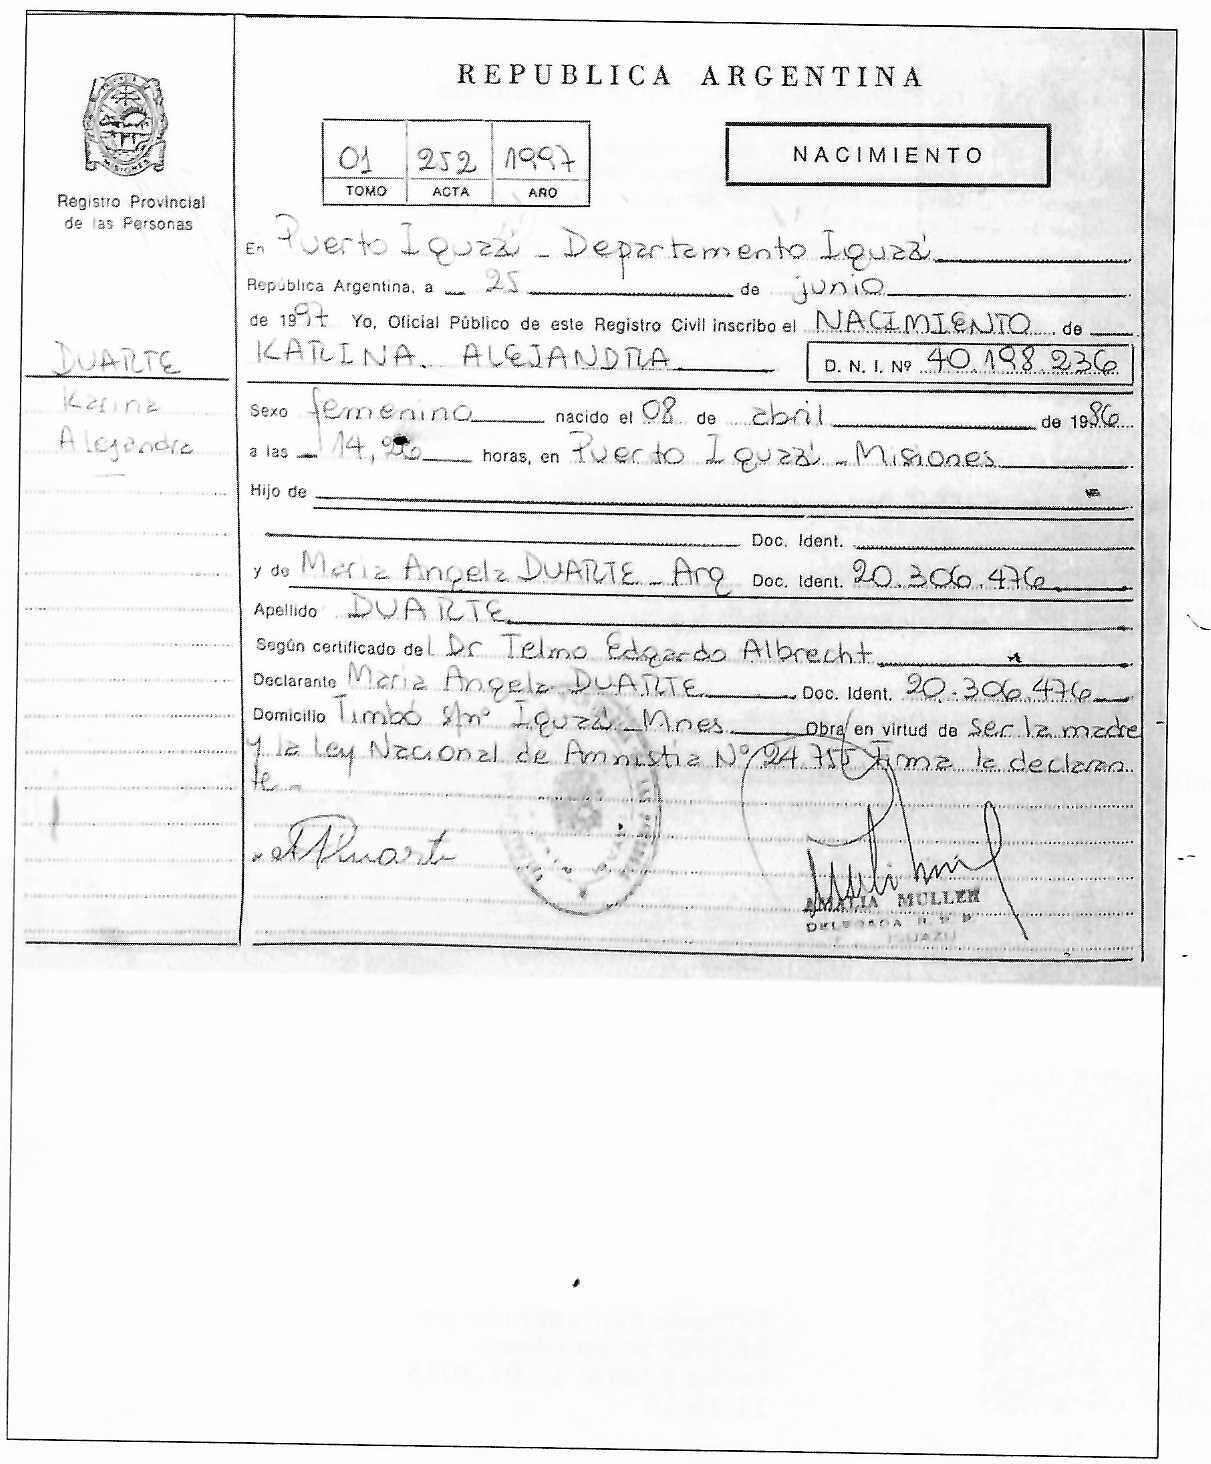 REPUBLICA ARGENTINA
MISIONES
Registro Provincial
de las Personas
01 252 1997
TOMO ACTA AÑO
NACIMIENTO
En Puerto Iguazú - Departamento Iguazú
República Argentina, a 25 de junio
de 1997 Yo, Oficial Público de este Registro Civil inscribo el NACIMIENTO de
DUARTE
Karina
Alejandra
KARINA ALEJANDRA D. N. I. Nº 40.198.236
Sexo femenino nacido el 08 de abril de 1986
a las 14, horas, en Puerto Iguazú - Misiones
Hijo de
Doc. Ident.
y de Maria Angela DUARTE - Arg Doc. Ident. 20.306.476
Apellido DUARTE
Según certificado del Dr Telmo Edgardo Albrecht
Declarante Maria Angela DUARTE Doc. Ident. 20.306.476
Domicilio Timbó s/nº Iguazú - Mnes Obra en virtud de ser la madre
y la Ley Nacional de Amnistia Nº 24.755 firma la declaran
te -
Duarte
AMALIA MULLER
DELEGADA R. P. P.
IGUAZU